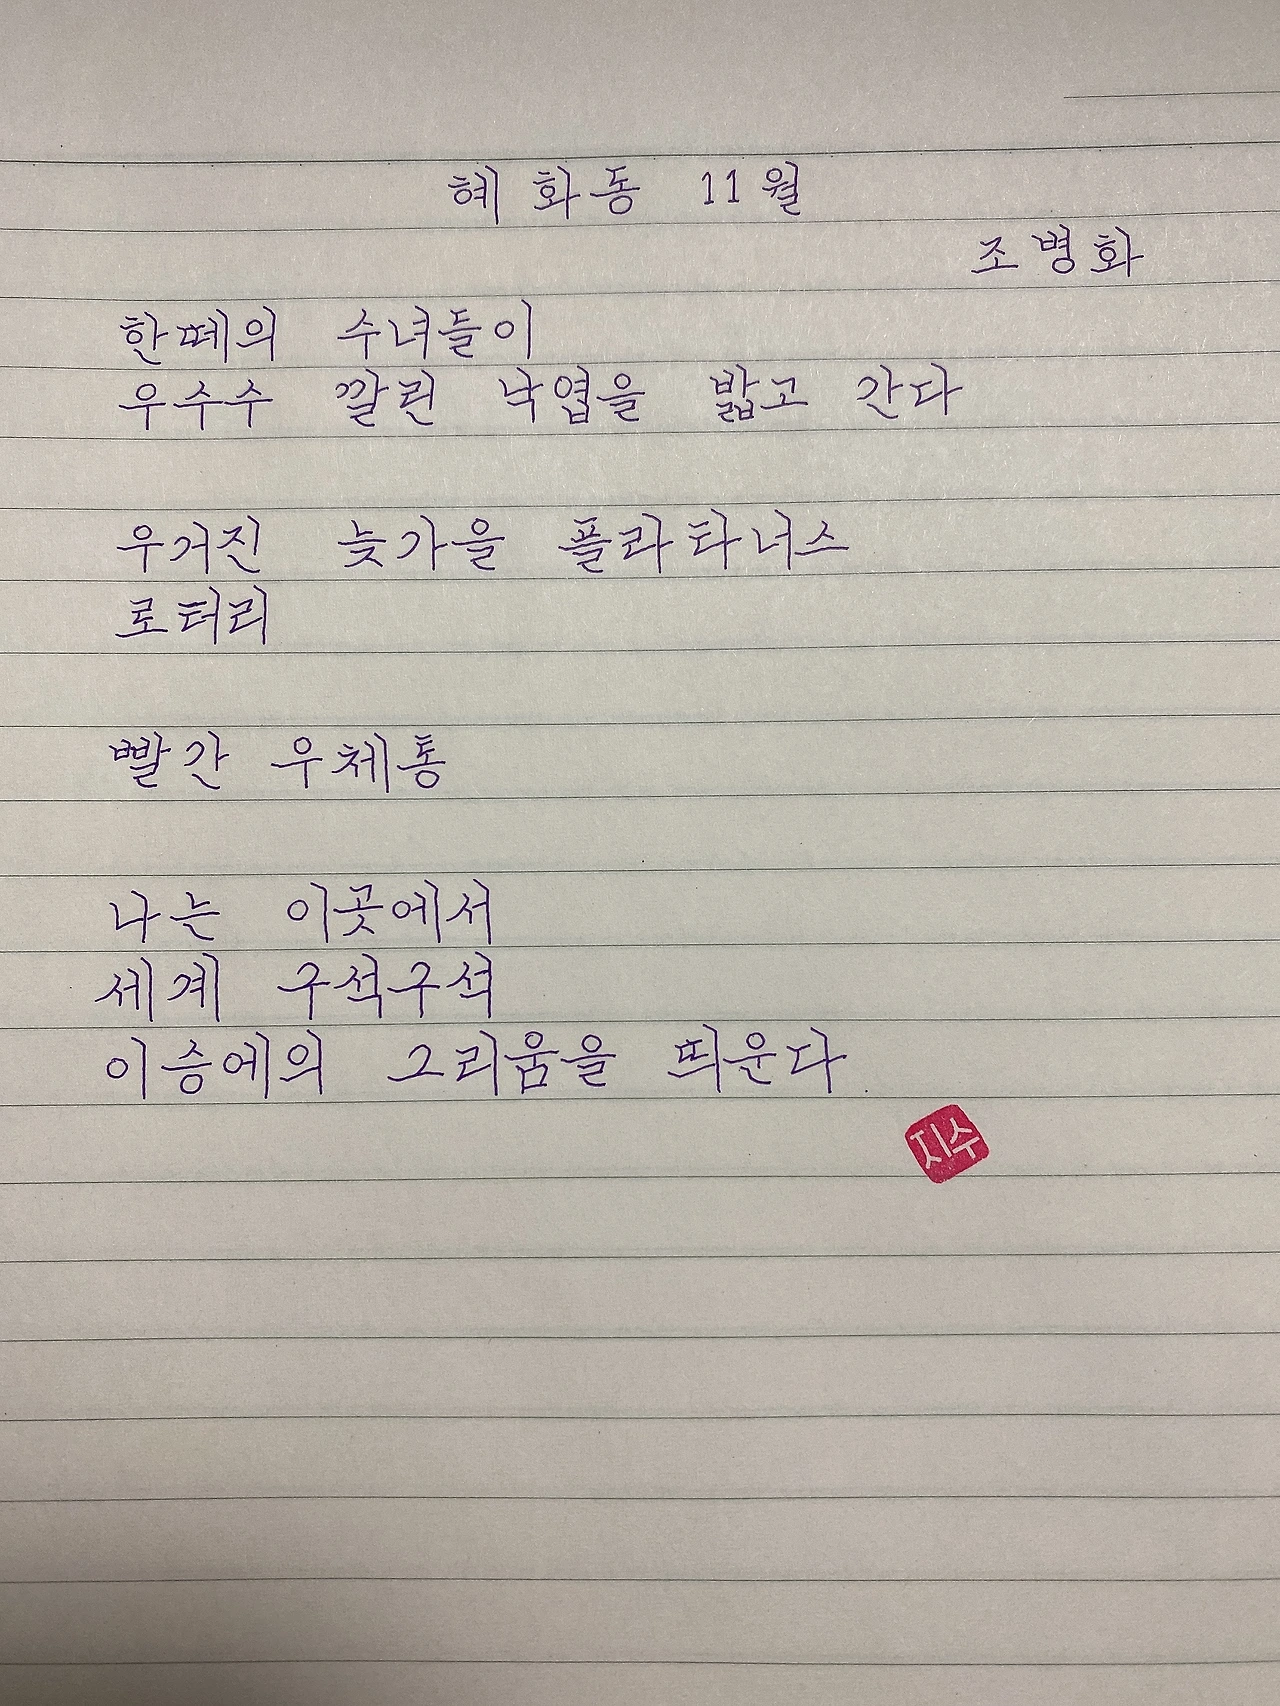 혜화동 11월
조병화
한떼의 수녀들이
우수수 깔린 낙엽을 밟고 간다
우거진 늦가을 플라타너스
로터리
빨간 우체통
나는 이곳에서
세계 구석구석
이승에의 그리움을 띄운다
지수